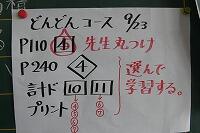 どんどんコース 9/23
P110 4 先生丸つけ
P240 4
計ド 10 11
プリント
選んで
学習する。
④ ④
⑤ ⑤
⑥ ⑥
⑦